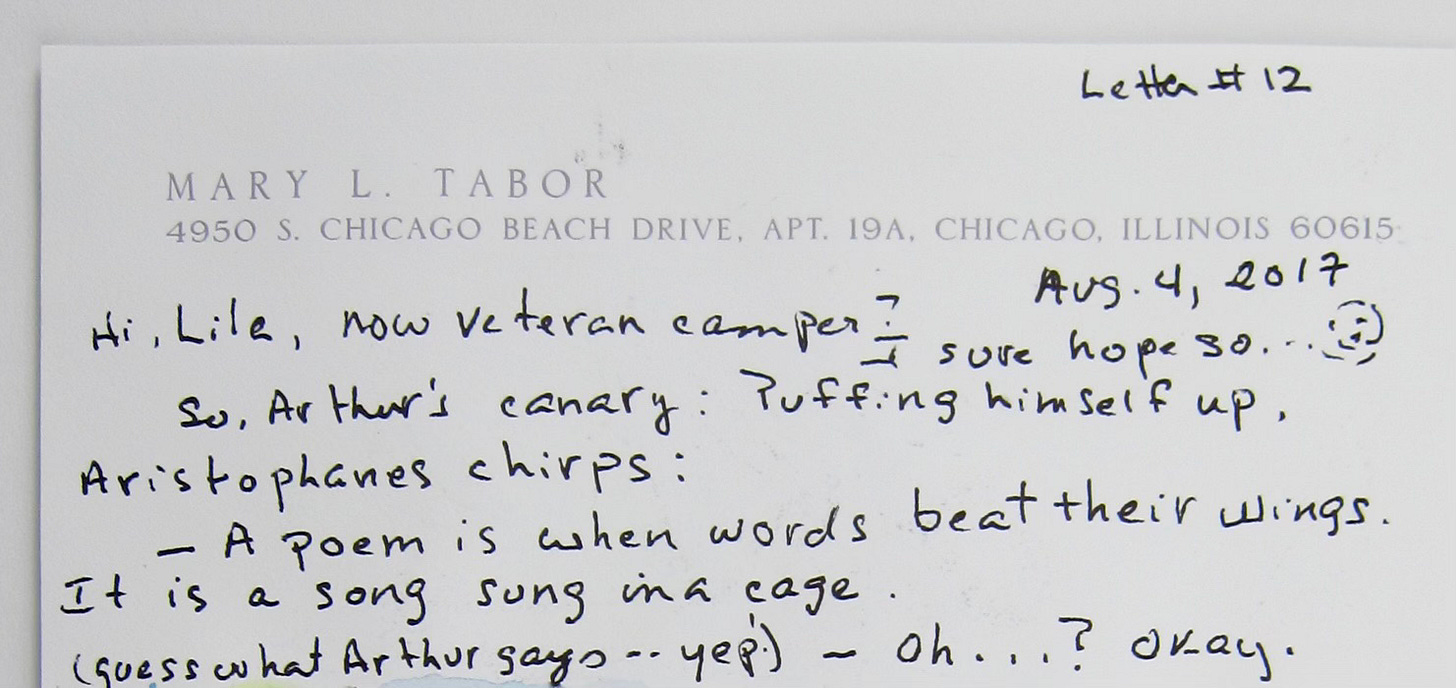 Letter # 12
MARY L. TABOR
4950 S. CHICAGO BEACH DRIVE, APT. 19A, CHICAGO, ILLINOIS 60615
Aug. 4, 2017
Hi, Lila, now veteran camper? I sure hope so...
So, Arthur's canary: Puffing himself up,
Aristophanes chirps:
— A poem is when words beat their wings.
It is a song sung in a cage.
(guess what Arthur says -- yep!) — Oh...? Okay.